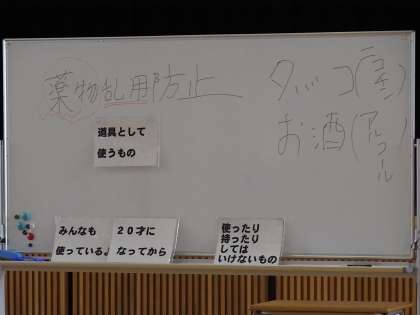 薬物乱用防止
タバコ(ニコチン)
お酒(アルコール)
道具として
使うもの
みんなも
使っているよ
20才に
なってから
使ったり
持ったり
しては
いけないもの